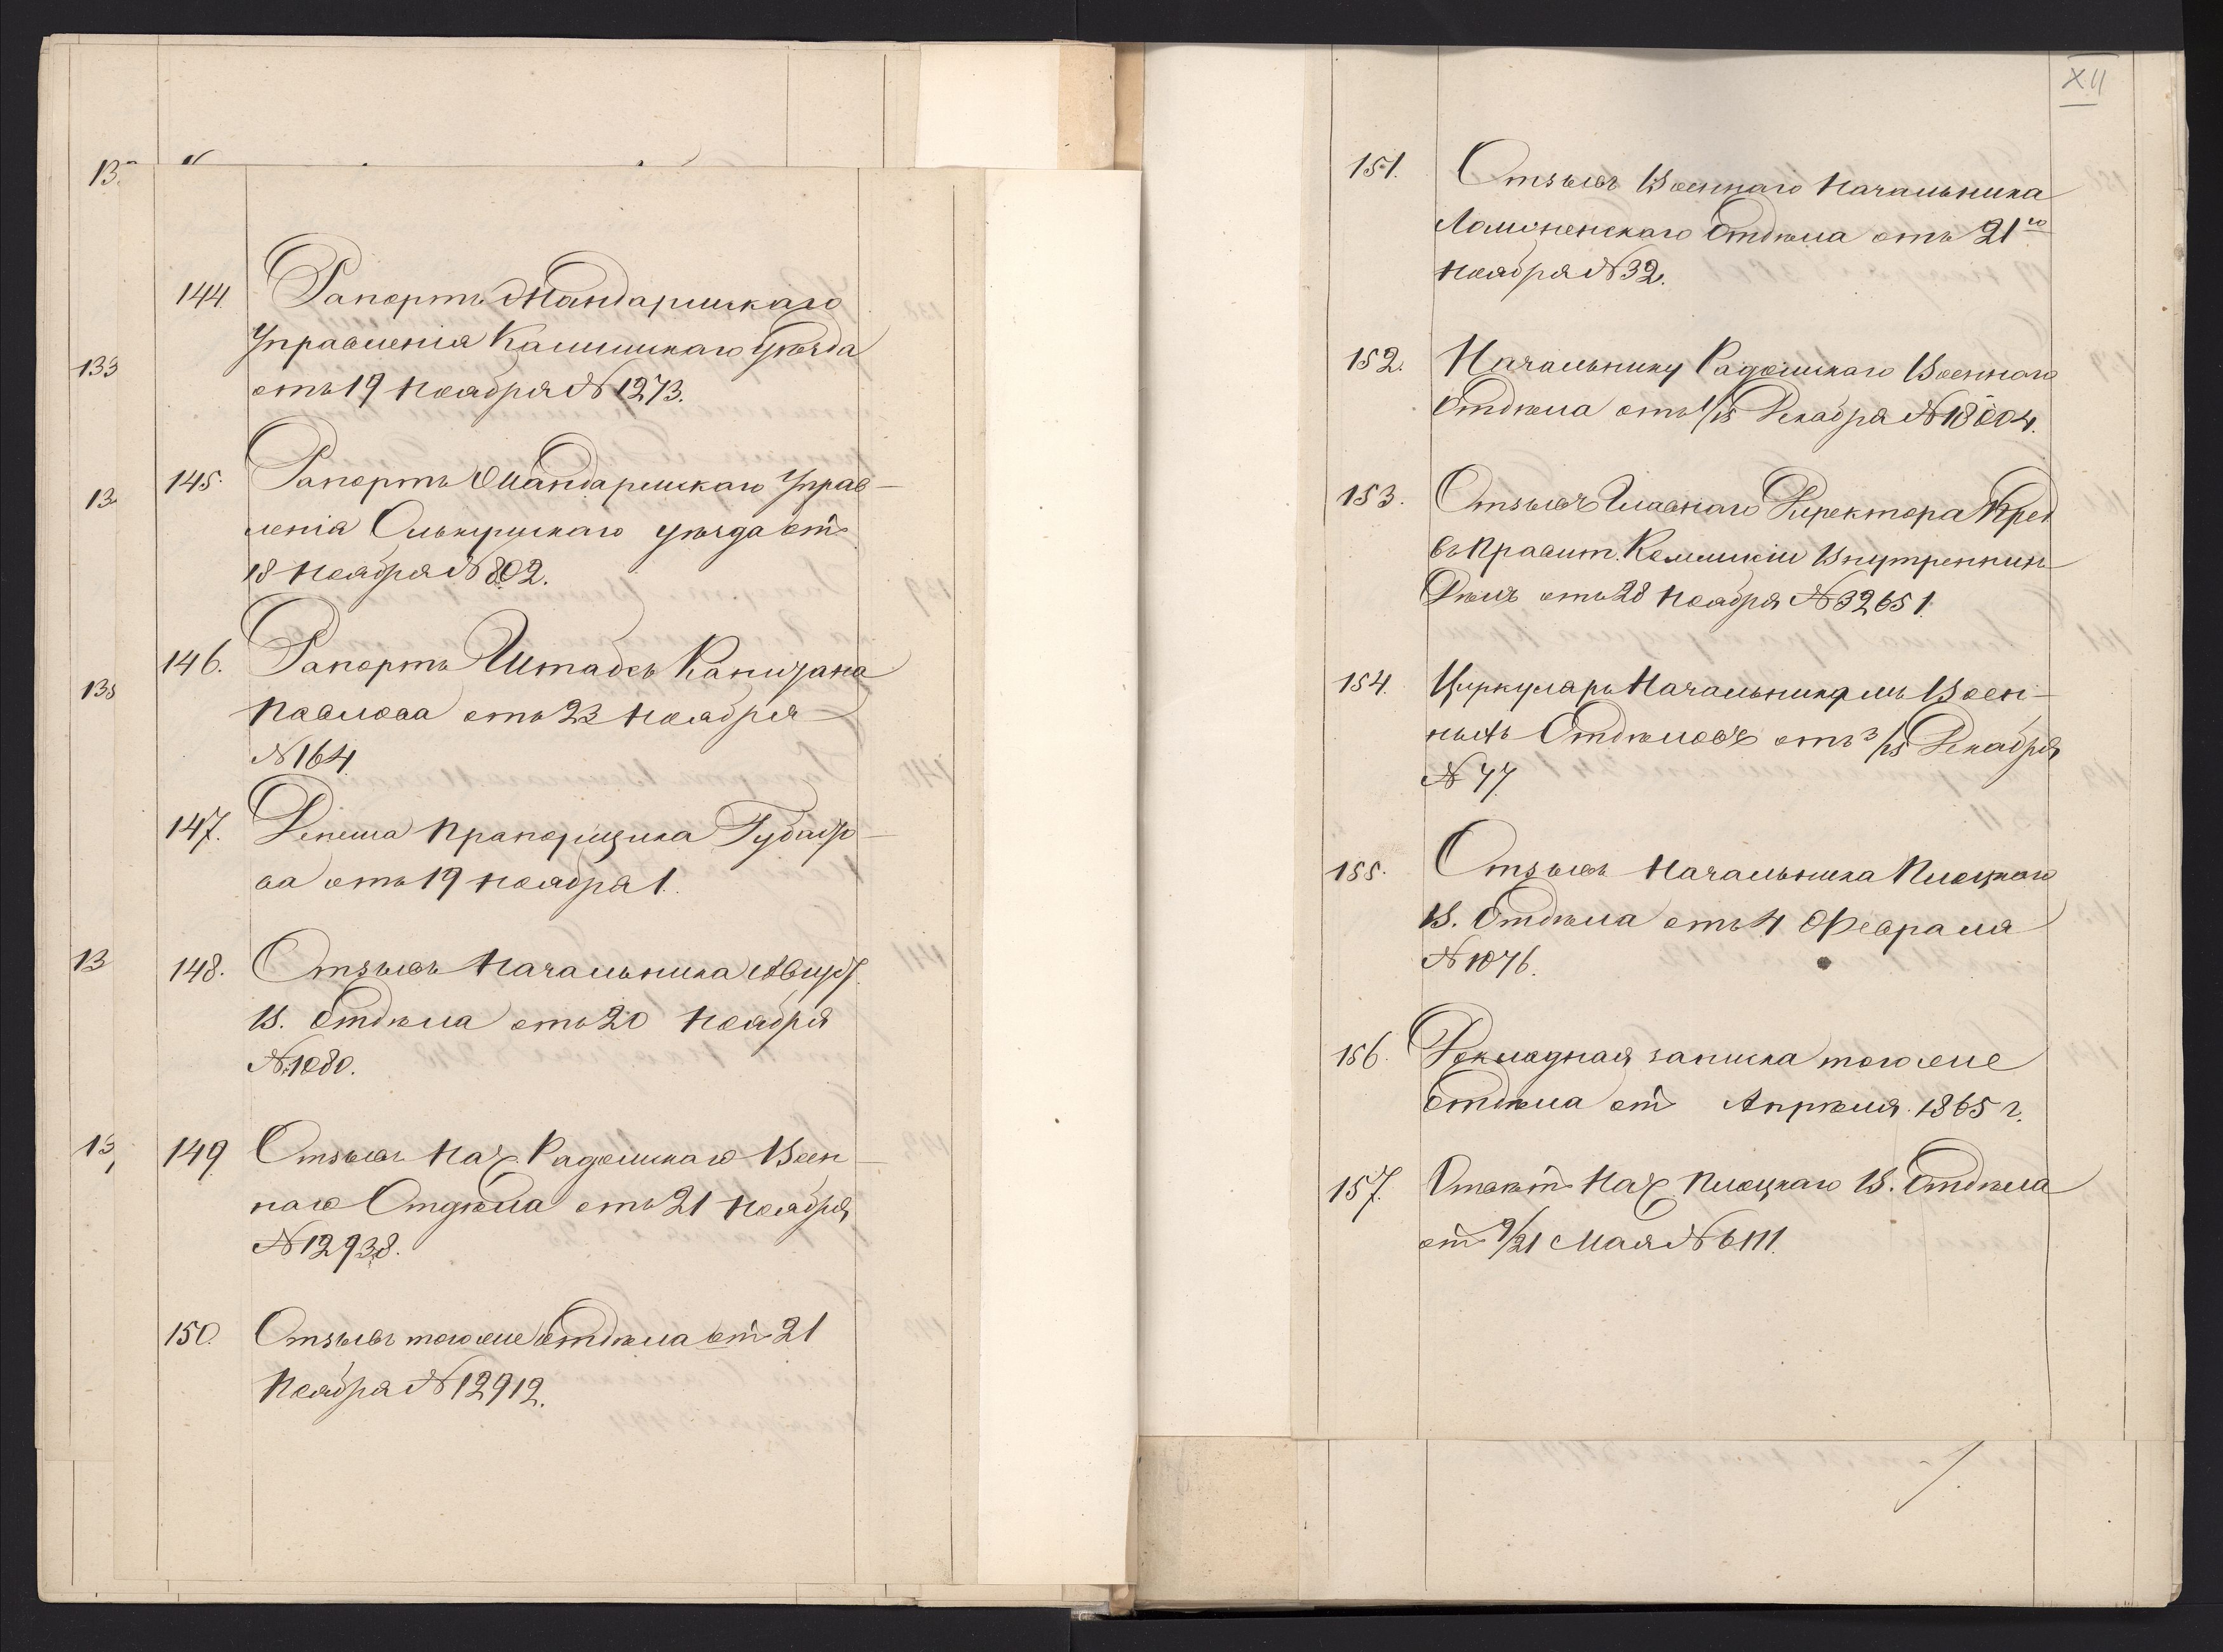 XII
13
133
13
135
13
13
144. Рапортъ Жандармскаго
Управленія Калишскаго уѣзда
отъ 19 Ноября № 1273.
145. Рапортъ Жандармскаго Управ-
ленія Олькушскаго уѣзда отъ
18 Ноября № 802.
146. Рапортъ Штабсъ Капитана
Павлова отъ 23 Ноября
№ 164
147. Депеша Прапорщика
ва отъ 19 Ноября 1.
148. Отзывъ Начальника Авгус.
В. Отдѣла отъ 20 Ноября
№ 1080.
149 Отзывъ Нач. Радомскаго Воен-
наго Отдѣла отъ 21 Ноября
№ 12938.
150. Отзывъ того же Отдѣла отъ 21
Ноября № 12912.
151. Отзывъ Военнаго Начальника
Отдѣла отъ 21го
Ноября № 32.
152. Начальнику Радомскаго Военнаго
Отдѣла отъ 1/13 Декабря № 18004.
153. Отзывъ Главнаго Директора Пред
въ Правит. Коммисіи Внутреннихъ
Дѣлъ отъ 28 Ноября № 32651.
154. Циркуляръ Начальникамъ Воен-
ныхъ Отдѣловъ отъ 3/15 Декабря
№ 77
155. Отзывъ Начальника Плоцкаго
В. Отдѣла отъ 4 Февраля
№ 1076.
156. Докладная записка того же
Отдѣла отъ Апрѣля 1865 г.
157. Отвѣтъ Нач. Плоцкаго В. Отдѣла
отъ 9/21 Мая № 6111.